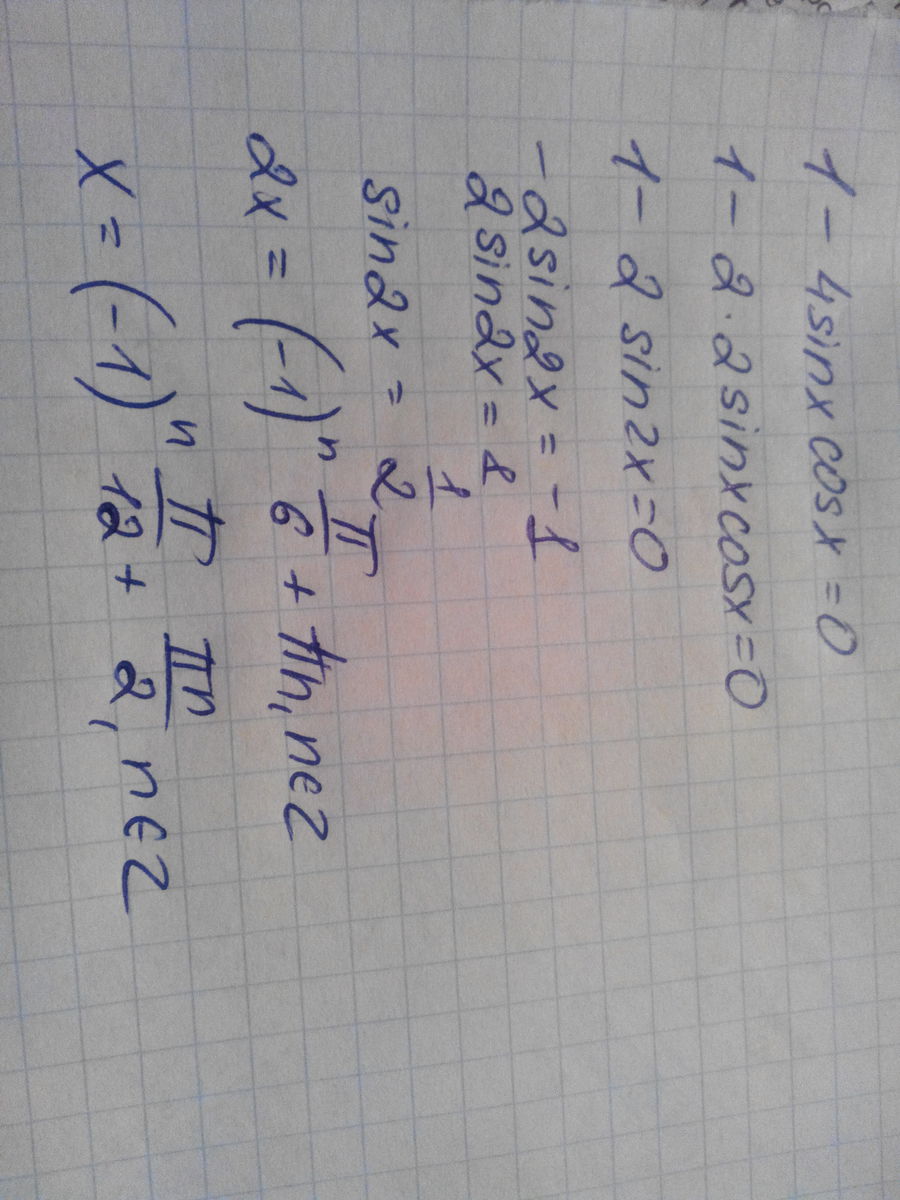 1 - 4sinx cosx = 0
1 - 2 · 2 sinx cosx = 0
1 - 2 sin2x = 0
-2sin2x = -1
2sin2x = 1
sin2x = 1/2
2x = (-1)^n π/6 + πn, n∈Z
x = (-1)^n π/12 + πn/2, n∈Z